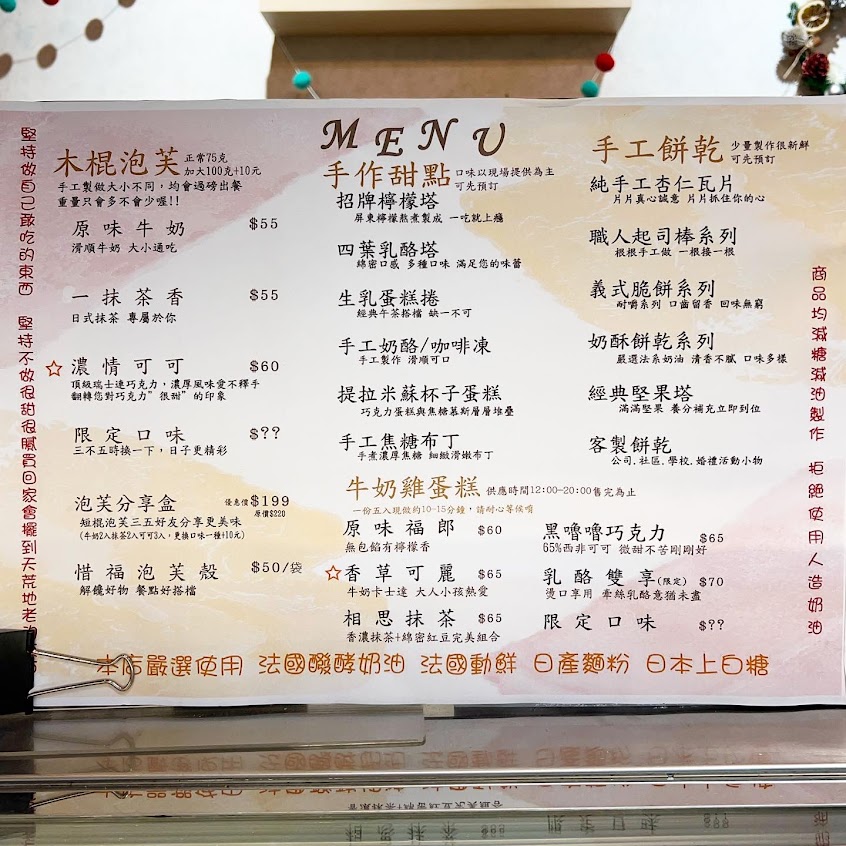 MENU
堅持做自己敢吃的東西 堅持不做很甜很膩買回家會擺到天荒地老
木棍泡芙 正常75克
加大100克+10元
手工製做大小不同,均會過磅出餐
重量只會多不會少喔!!
原味牛奶 $55
滑順牛奶 大小通吃
一抹茶香 $55
日式抹茶 專屬於你
☆濃情可可 $60
頂級瑞士連巧克力,濃厚風味愛不釋手
翻轉您對巧克力"很甜"的印象
限定口味 $??
三不五時換一下,日子更精彩
泡芙分享盒 優惠價$199
原價$220
短棍泡芙三五好友分享更美味
(牛奶2入抹茶2入可可3入,更換口味一種+10元)
惜福泡芙殼 $50/袋
解饞好物 餐點好搭檔
手作甜點 口味以現場提供為主
可先預訂
招牌檸檬塔
屏東檸檬熬煮製成 一吃就上癮
四葉乳酪塔
綿密口感 多種口味 滿足您的味蕾
生乳蛋糕捲
經典午茶搭檔 缺一不可
手工奶酪/咖啡凍
手工製作 滑順可口
提拉米蘇杯子蛋糕
巧克力蛋糕與焦糖慕斯層層堆疊
手工焦糖布丁
手煮濃厚焦糖 細緻滑嫩布丁
手工餅乾 少量製作很新鮮
可先預訂
純手工杏仁瓦片
片片真心誠意 片片抓住你的心
職人起司棒系列
根根手工做 一根接一根
義式脆餅系列
耐嚼系列 口齒留香 回味無窮
奶酥餅乾系列
嚴選法系奶油 清香不膩 口味多樣
經典堅果塔
滿滿堅果 養分補充立即到位
客製餅乾
公司.社區.學校.婚禮活動小物
牛奶雞蛋糕 供應時間12:00-20:00售完為止
一份五入現做約10-15分鐘,請耐心等候唷
原味福郎 $60
無包餡有檸檬香
☆香草可麗 $65
牛奶卡士達 大人小孩熱愛
相思抹茶 $65
香濃抹茶+綿密紅豆完美組合
黑嚕嚕巧克力 $65
65%西非可可 微甜不苦剛剛好
乳酪雙享(限定) $70
燙口享用 牽絲乳酪意猶未盡
限定口味 $??
商品均減糖減油製作 拒絕使用人造奶油
本店嚴選使用 法國醱酵奶油 法國動鮮 日產麵粉 日本上白糖